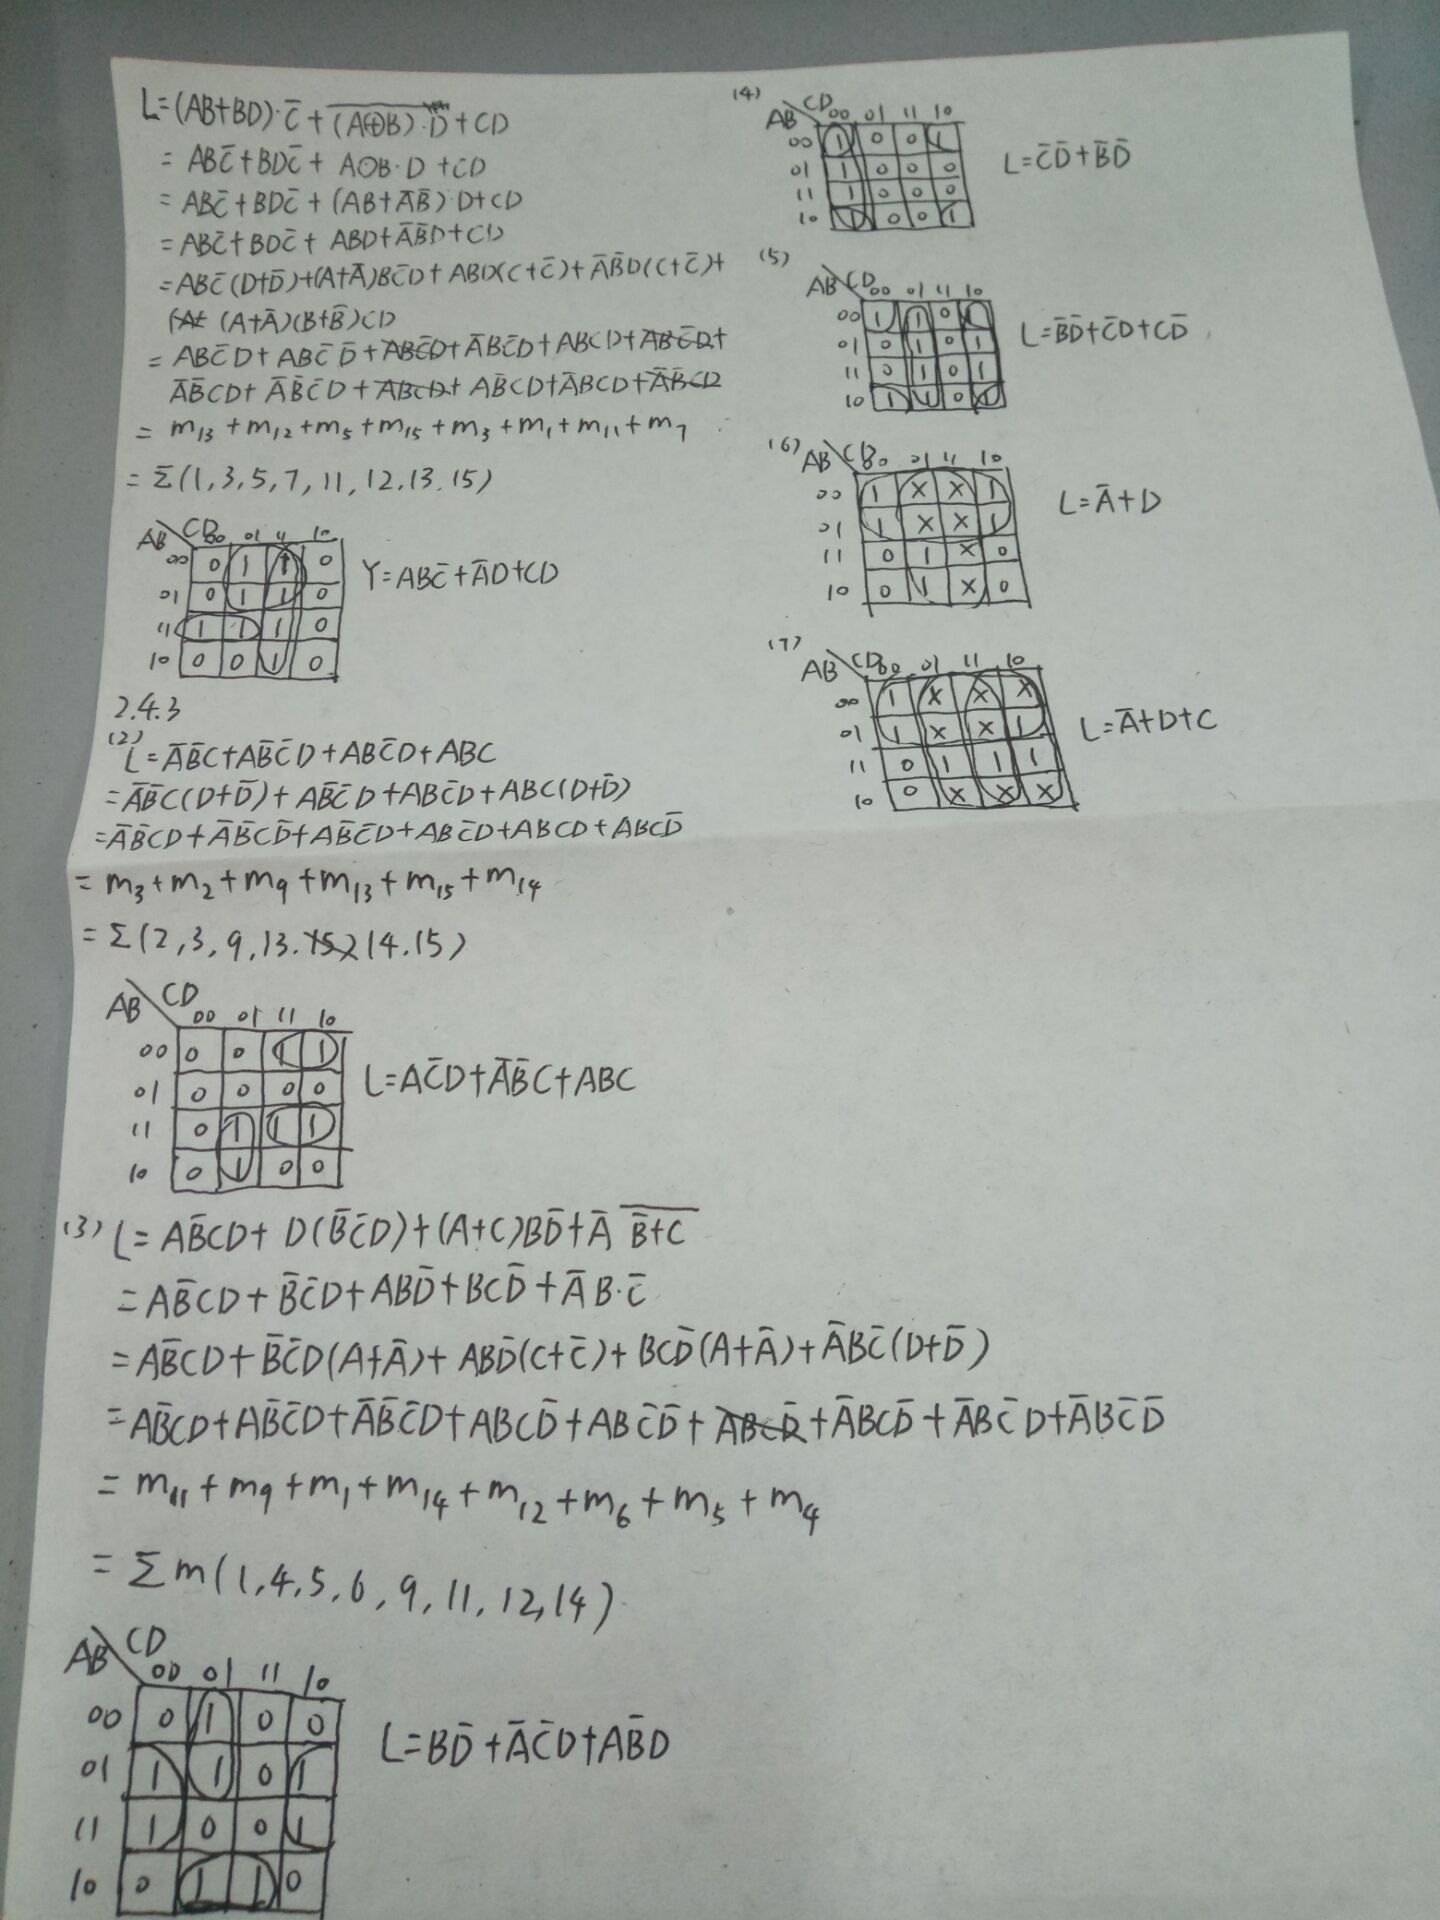 L=(AB+BD)·C̅+(A⊕B)·D̅+CD
=ABC̅+BDC̅+A⊙B·D+CD
=ABC̅+BDC̅+(AB+A̅B̅)·D+CD
=ABC̅+BDC̅+ABD+A̅B̅D+CD
=ABC̅(D+D̅)+(A+A̅)BC̅D+ABD(C+C̅)+A̅B̅D(C+C̅)+
(A+A̅)(B+B̅)CD
=ABC̅D+ABC̅D̅+ABC̅D+A̅BC̅D+ABCD+ABC̅D+
A̅B̅CD+A̅B̅C̅D+ABCD+AB̅CD+A̅BCD+A̅B̅CD
=m₁₃+m₁₂+m₅+m₁₅+m₃+m₁+m₁₁+m₇
=Σ(1,3,5,7,11,12.13.15)
AB CD 00 01 11 10
00 0 1 1 0
01 0 1 1 0
11 1 1 1 0
10 0 0 1 0
Y=ABC̅+A̅D+CD
2.4.3
(2) L=A̅B̅C+AB̅C̅D+ABC̅D+ABC
=A̅B̅C(D+D̅)+AB̅C̅D+ABC̅D+ABC(D+D̅)
=A̅B̅CD+A̅B̅CD̅+AB̅C̅D+ABC̅D+ABCD+ABCD̅
=m₃+m₂+m₉+m₁₃+m₁₅+m₁₄
=Σ(2,3,9,13.15)14.15)
AB CD
00 01 11 10
00 0 0 1 1
01 0 0 0 0
11 0 1 1 1
10 0 1 0 0
L=AC̅D+A̅B̅C+ABC
(3) L=AB̅CD+D(B̅C̅D)+(A+C)BD̅+A̅ B̅+C̅
=AB̅CD+B̅C̅D+ABD̅+BCD̅+A̅B·C̅
=AB̅CD+B̅C̅D(A+A̅)+ABD̅(C+C̅)+BCD̅(A+A̅)+A̅BC̅(D+D̅)
=AB̅CD+AB̅C̅D+A̅B̅C̅D+ABCD̅+ABC̅D̅+ABCD̅+A̅BCD̅+A̅BC̅D+A̅BC̅D̅
=m₁₁+m₉+m₁+m₁₄+m₁₂+m₆+m₅+m₄
=Σm(1,4,5,6,9,11,12,14)
AB CD
00 01 11 10
00 0 1 0 0
01 1 1 0 1
11 1 0 0 1
10 0 1 1 0
L=BD̅+A̅C̅D+AB̅D
(4)
AB CD 00 01 11 10
00 1 0 0 1
01 1 0 0 0
11 1 0 0 0
10 1 0 0 1
L=C̅D̅+B̅D̅
(5)
AB CD 00 01 11 10
00 1 1 0 1
01 0 1 0 1
11 0 1 0 1
10 1 1 0 1
L=B̅D̅+C̅D+CD̅
(6)
AB CD 00 01 11 10
00 1 × × 1
01 1 × × 1
11 0 1 × 0
10 0 1 × 0
L=A̅+D
(7)
AB CD 00 01 11 10
00 1 × × ×
01 1 × × 1
11 0 1 1 1
10 0 × × ×
L=A̅+D+C